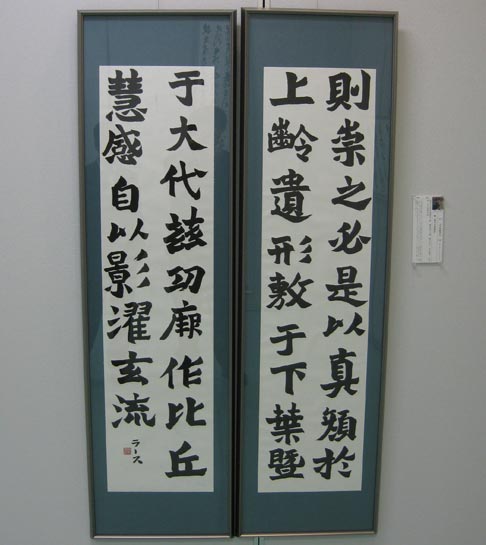 則崇之必是以真顏於
上齡遺形敷于下葉暨
于大代茲功厥作比丘
慧感自以影濯玄流
ラース